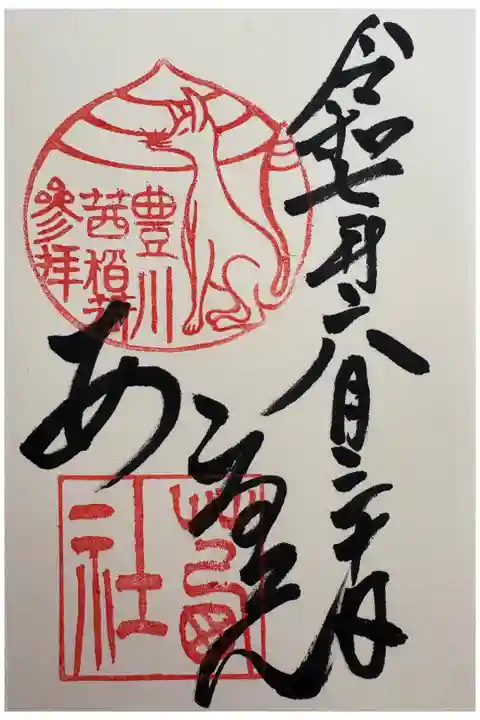 令和七年八月二十日
豊川
茜稲荷
參拝
あ
茜社